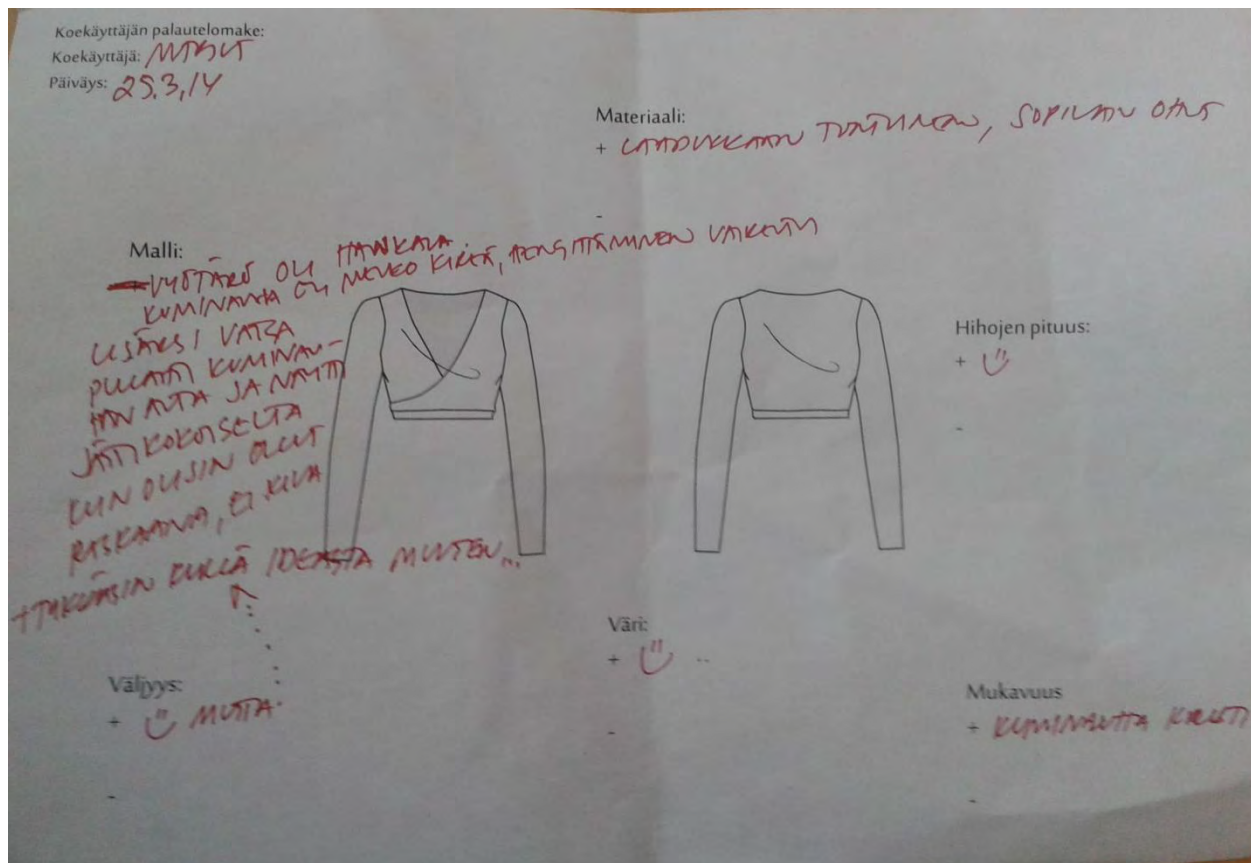 Koekäyttäjän palautelomake:
Koekäyttäjä:
Päiväys: 25.3.14
Materiaali:
+ LAADUKKAAN TUNTUINEN, SOPIVAN OHUT
-
Malli:
- VYÖTÄRÖ OLI HANKALA.
KUMINAUHA OLI MELKO KIREÄ, HENGITTÄMINEN VAIKEUTUI
LISÄKSI VATSA
PULLAHTI KUMINAU-
HAN ALTA JA NÄYTTI
JÄTTIKOKOISELTA
KUIN OLISIN OLLUT
RASKAANA, EI KIVA
+ TYKKÄSIN KYLLÄ IDEASTA MUUTEN...
Hihojen pituus:
+
-
Väljyys:
+ MUTTA
-
Väri:
+
-
Mukavuus
+ KUMINAUHA KIRISTI
-